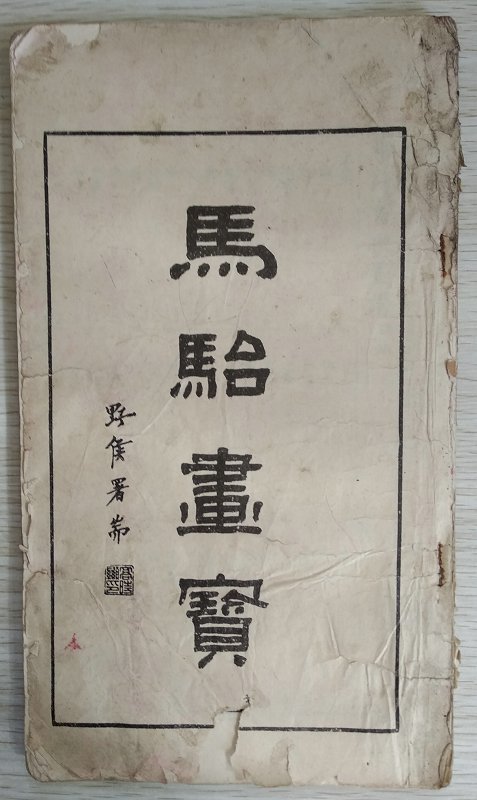 馬駘畫寶
野矦署耑